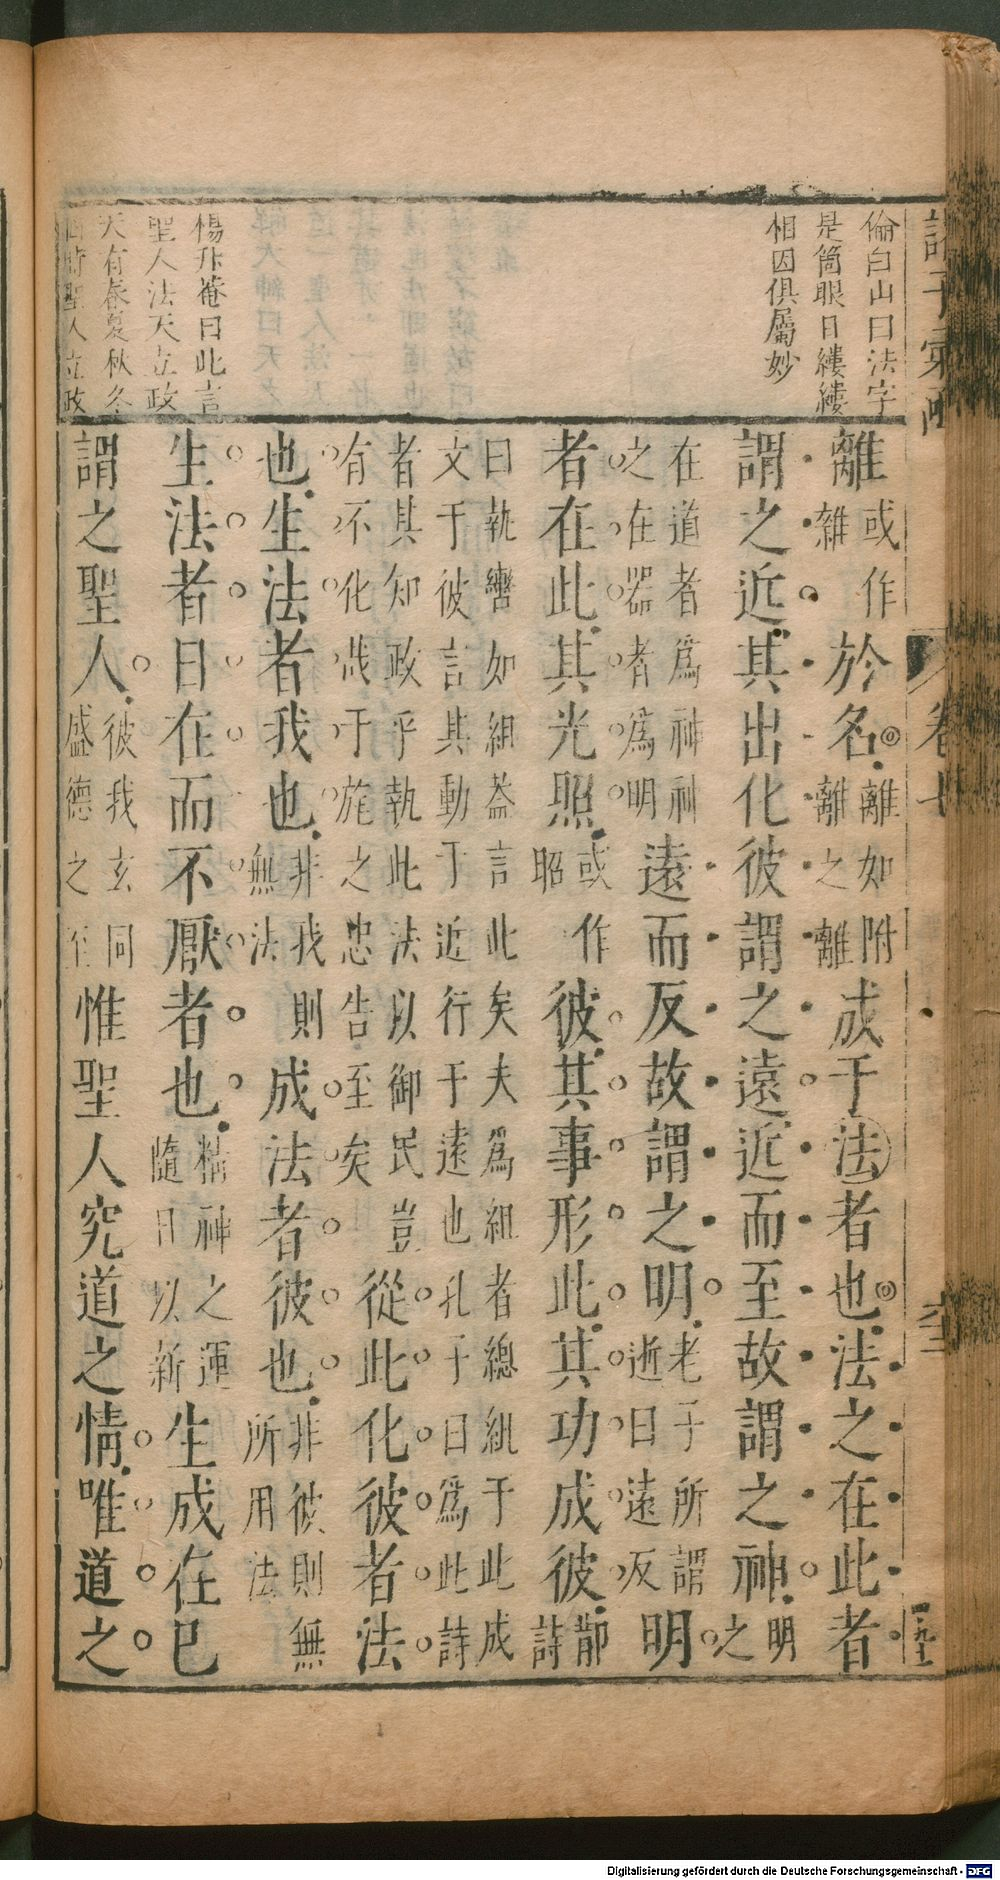 倫白山曰法字
是箇眼目縷縷
相因俱屬妙
楊升菴曰此言
聖人法天立政
天有春夏秋冬
四時聖人立政
離或作雜於名離如附離之離成于法者也法之在此者
謂之近其出化彼謂之遠近而至故謂之神明之
遠而反故謂之明明
在道者爲神神
之在器者爲明
老子所謂
逝曰遠遠反
者在此其光照或作昭彼其事形此其功成彼鄁詩
曰執轡如組葢言此矣夫爲組者總紕于此成
文于彼言其動于近行于遠也孔子曰爲此詩
者其知政乎執此法以御民豈
有不化哉于旄之忠告至矣
從此化彼者法
也生法者我也非我則無法成法者彼也非彼則無所用法
生法者日在而不厭者也精神之運隨日以新生成在已
謂之聖人彼我玄同盛德之至惟聖人究道之情唯道之
卷十
Digitalisierung gefördert durch die Deutsche Forschungsgemeinschaft - DFG